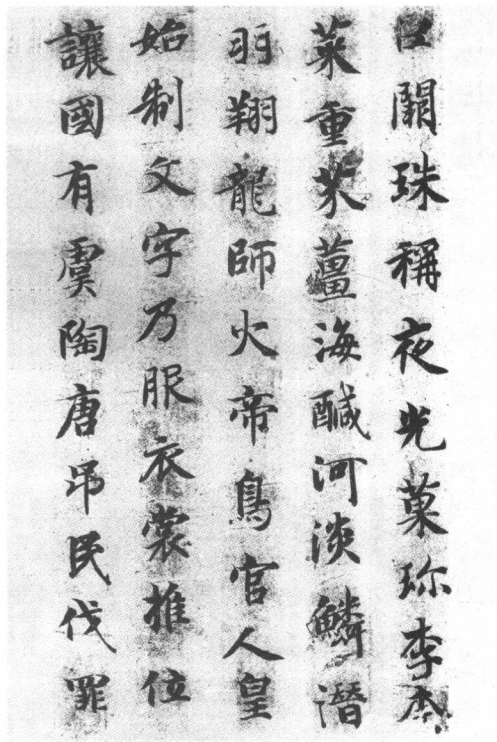 闕珠稱夜光菓珎李柰
菜重芥薑海醎河淡鱗潛
羽翔龍師火帝鳥官人皇
始制文字乃服衣裳推位
讓國有虞陶唐吊民伐罪